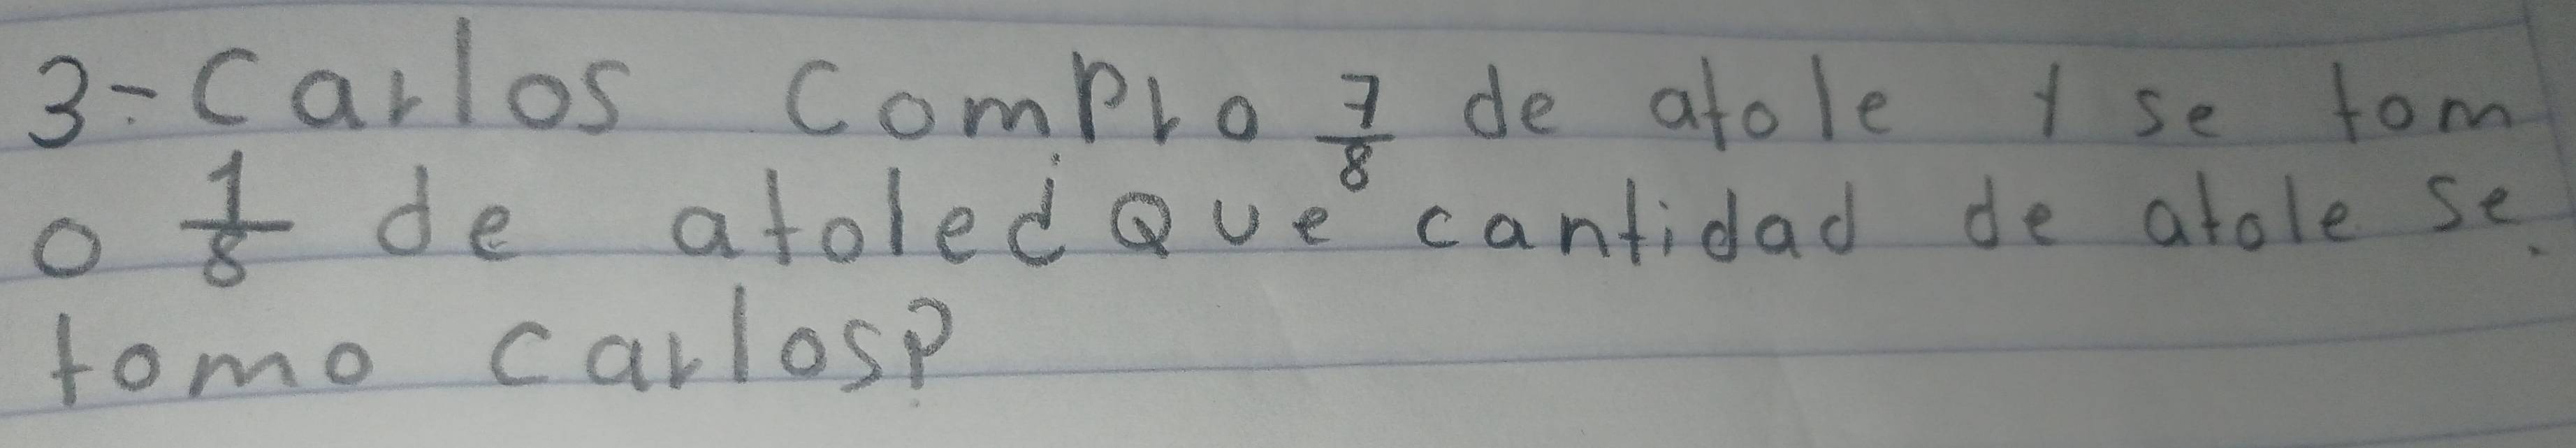 3-Carlos compro 7/8 de atole y se tom
o 1/8 de atole¿Que cantidad de atole se
tomo carlos?